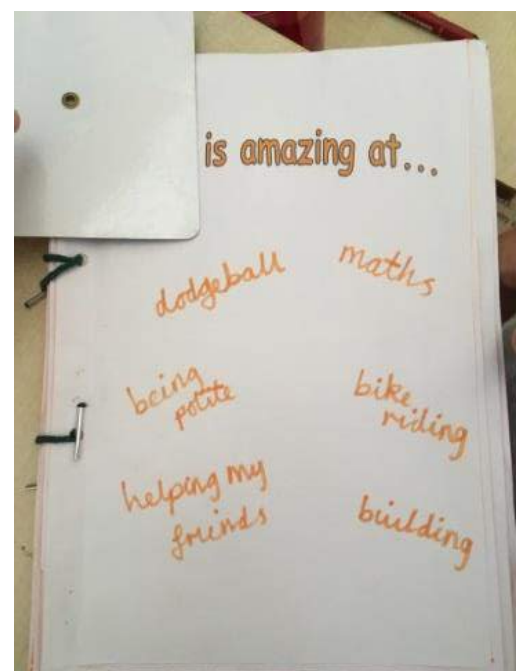 is amazing at...
dodgeball
maths
being
polite
bike
riding
helping my
friends
building